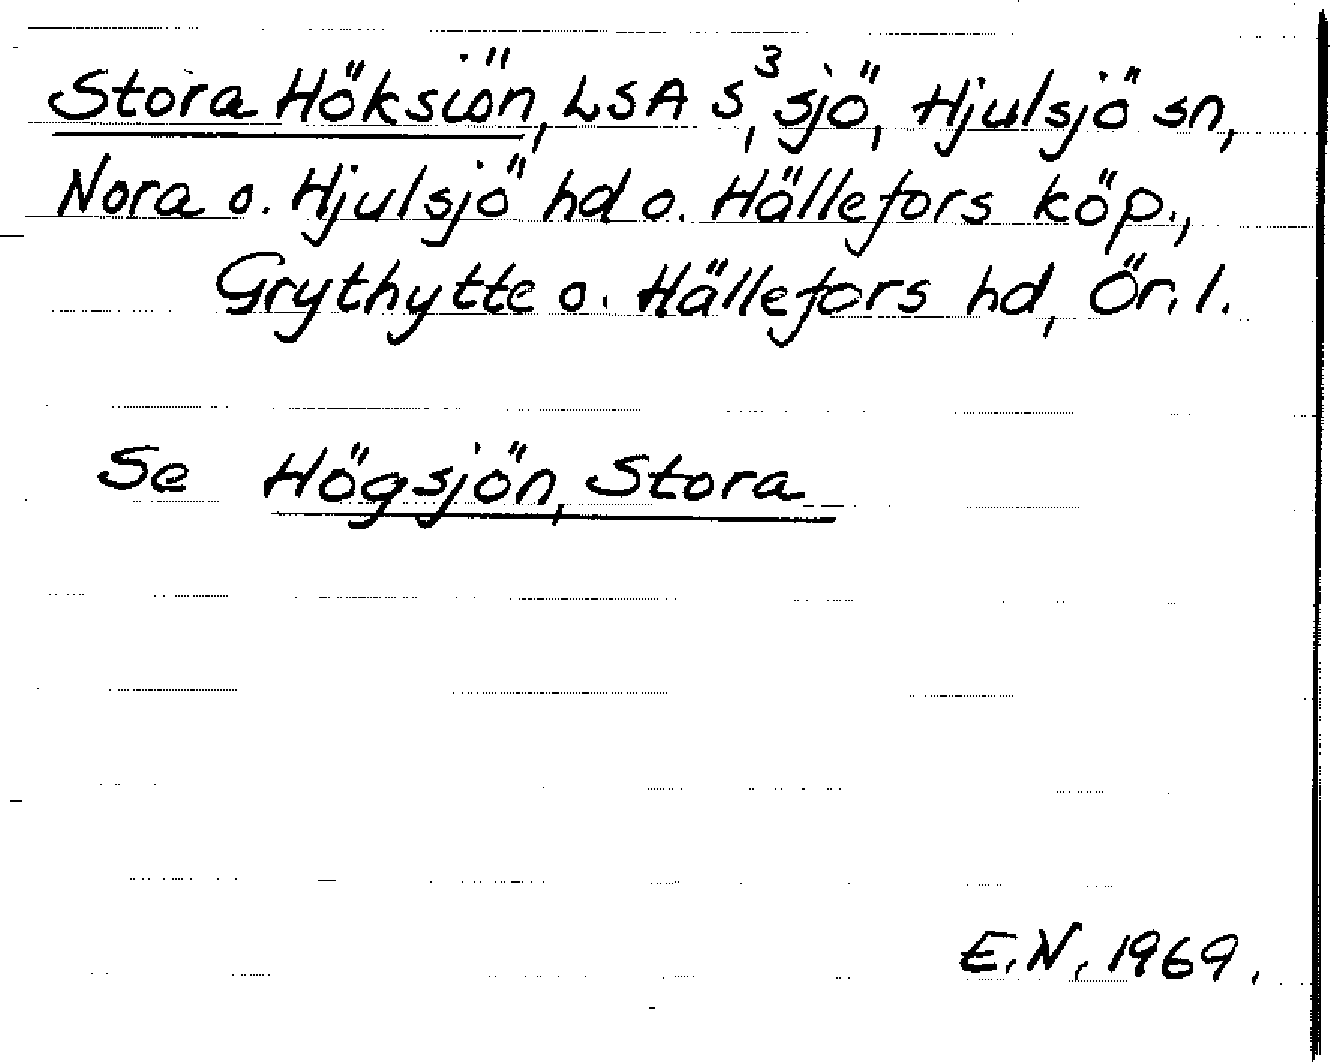 Stora Höksiön, LSA S³, sjö, Hjulsjö sn,
Nora o. Hjulsjö hd o. Hällefors köp.,
Grythytte o. Hällefors hd, Ör. l.
Se Högsjön, Stora
E.N. 1969.